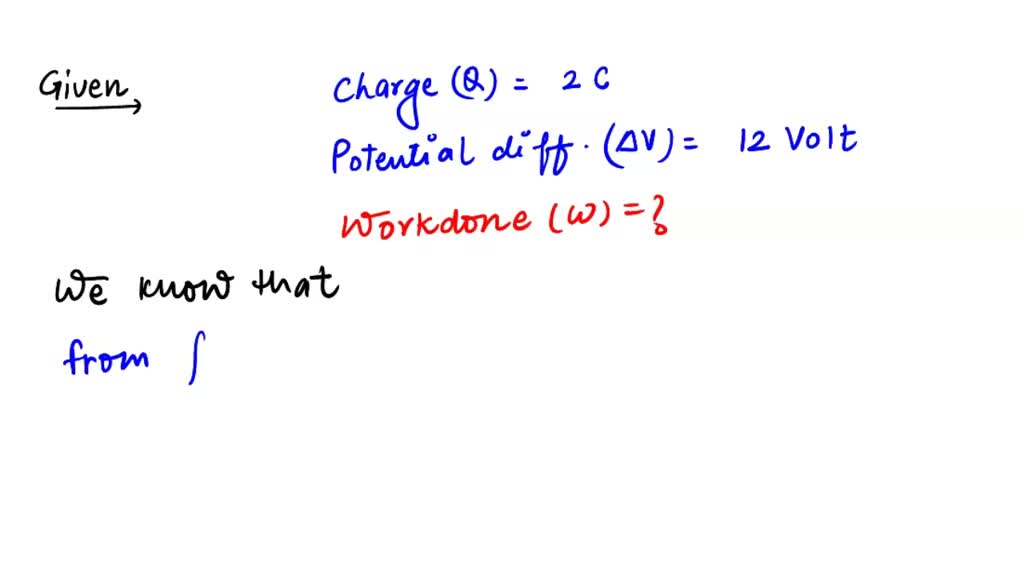 Given
Charge (Q) = 2 C
Potential diff. (ΔV) = 12 Volt
Workdone (W) = ?
We know that
from